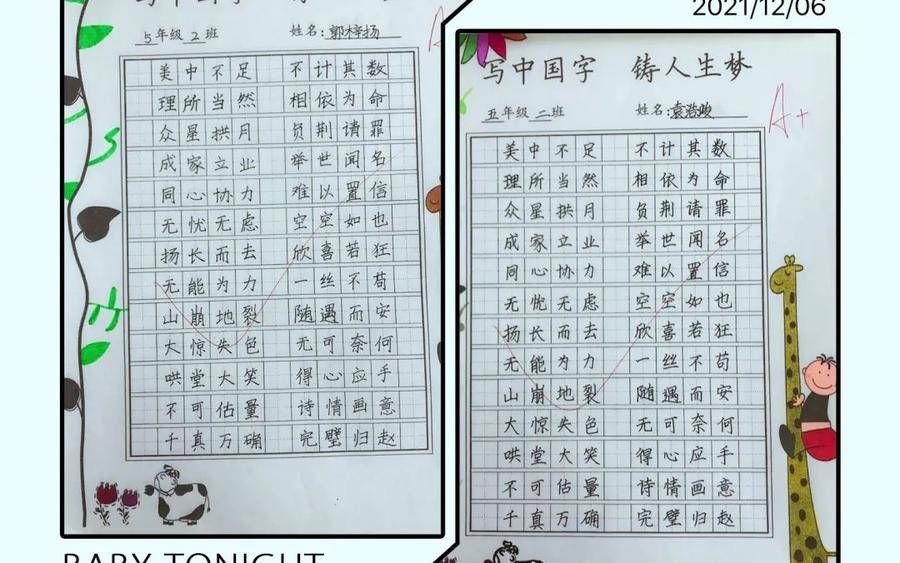 2021/12/06
5年级2班 姓名:郭梓扬
美中不足 不计其数
理所当然 相依为命
众星拱月 负荆请罪
成家立业 举世闻名
同心协力 难以置信
无忧无虑 空空如也
扬长而去 欣喜若狂
无能为力 一丝不苟
山崩地裂 随遇而安
大惊失色 无可奈何
哄堂大笑 得心应手
不可估量 诗情画意
千真万确 完璧归赵
写中国字 铸人生梦
五年级二班 姓名:
A+
美中不足 不计其数
理所当然 相依为命
众星拱月 负荆请罪
成家立业 举世闻名
同心协力 难以置信
无忧无虑 空空如也
扬长而去 欣喜若狂
无能为力 一丝不苟
山崩地裂 随遇而安
大惊失色 无可奈何
哄堂大笑 得心应手
不可估量 诗情画意
千真万确 完璧归赵
BABY TONIGHT